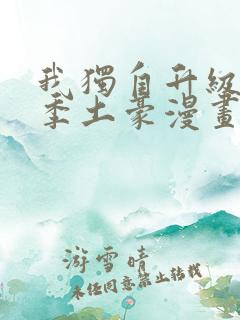 我獨自升級
季土豪漫畫
游雪晴
未經同意禁止轉載